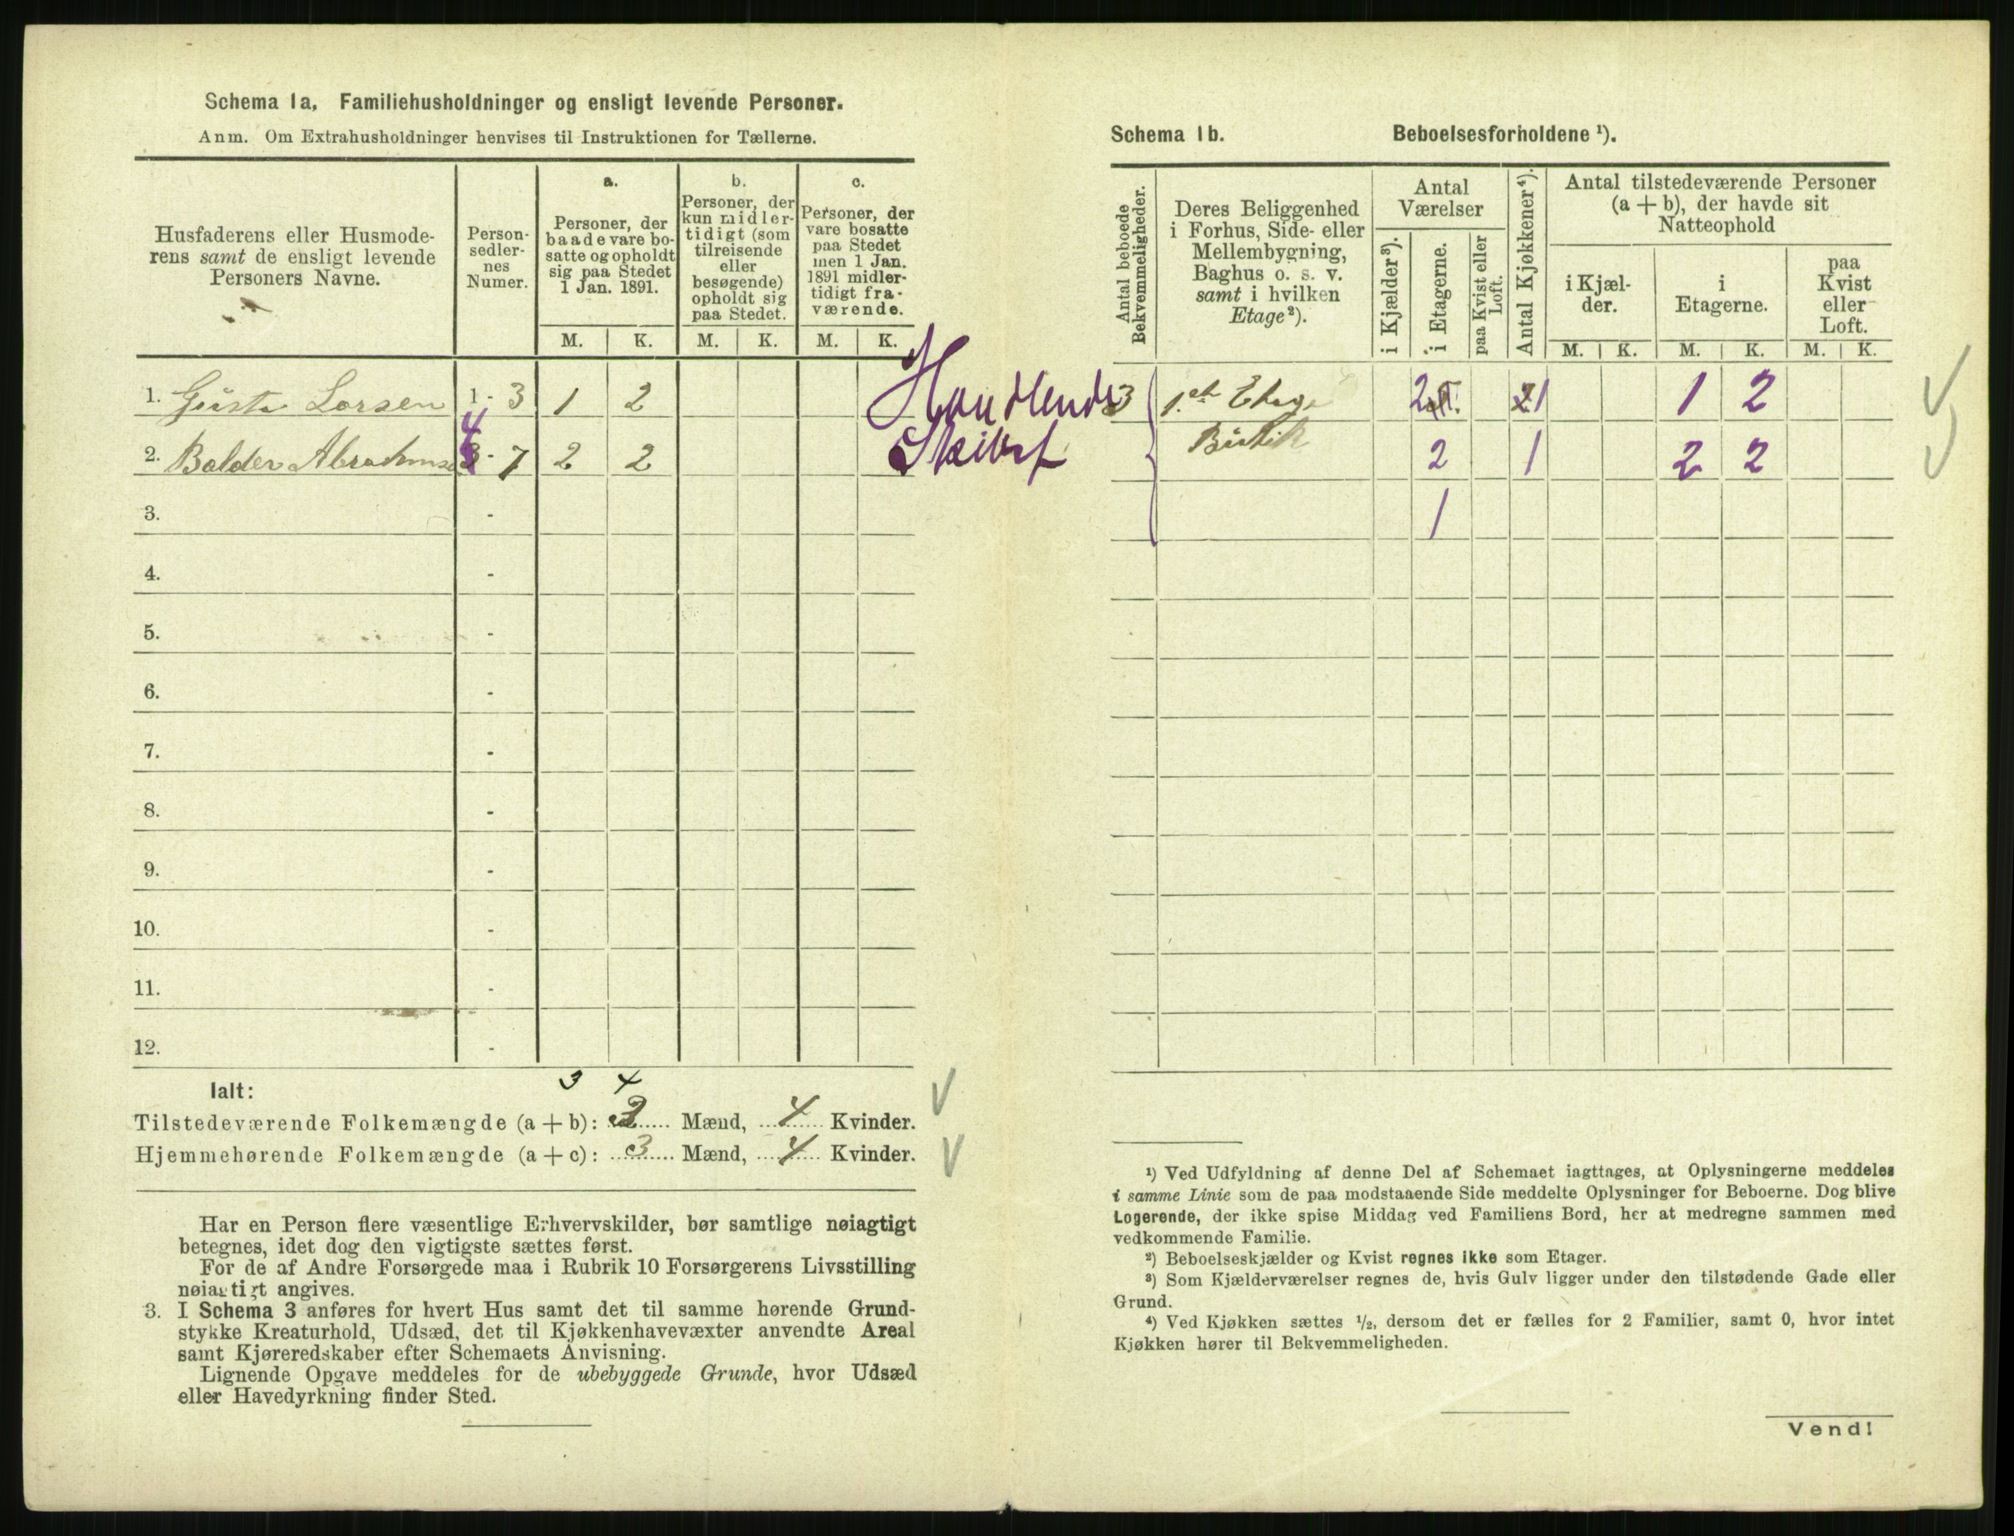 Schema 1a. Familiehusholdninger og ensligt levende Personer.
Anm. Om Extrahusholdninger henvises til Instruktionen for Tællerne.
Husfaderens eller Husmode-
rens samt de ensligt levende
Personers Navne.
Person-
sedler-
nes
Numer.
a.
Personer, der
baade vare bo-
satte og opholdt
sig paa Stedet
1 Jan. 1891.
b.
Personer, der
kun midler-
tidigt (som
tilreisende
eller
besøgende)
opholdt sig
paa Stedet.
c.
Personer, der
vare bosatte
paa Stedet
men 1 Jan.
1891 midler-
tidigt fra-
værende.
M. K. M. K. M. K.
1. Larsen 1 - 3 1 2
2. Balder 4 - 7 2 2
3. -
4. -
5. -
6. -
7. -
8. -
9. -
10. -
11. -
12. -
Ialt:
3 4
Tilstedeværende Folkemængde (a + b): 3 Mænd, 4 Kvinder.
Hjemmehørende Folkemængde (a + c): 3 Mænd, 4 Kvinder.
Har en Person flere væsentlige Erhvervskilder, bør samtlige nøiagtigt
betegnes, idet dog den vigtigste sættes først.
For de af Andre Forsørgede maa i Rubrik 10 Forsørgerens Livsstilling
nøiagtigt angives.
3. I Schema 3 anføres for hvert Hus samt det til samme hørende Grund-
stykke Kreaturhold, Udsæd, det til Kjøkkenhavevæxter anvendte Areal
samt Kjøreredskaber efter Schemaets Anvisning.
Lignende Opgave meddeles for de ubebyggede Grunde, hvor Udsæd
eller Havedyrkning finder Sted.
Schema 1b. Beboelsesforholdene ¹).
Antal beboede
Bekvemmeligheder.
Deres Beliggenhed
i Forhus, Side- eller
Mellembygning,
Baghus o. s. v.
samt i hvilken
Etage²).
Antal
Værelser
i Kjælder³).
i Etagerne.
paa Kvist eller
Loft.
Antal Kjøkkener⁴).
Antal tilstedeværende Personer
(a + b), der havde sit
Natteophold
i Kjæl-
der.
i
Etagerne.
paa
Kvist
eller
Loft.
M. K. M. K. M. K.
3 1ste Etage 2 1 1 2
Butik 2 1 2 2
1
¹) Ved Udfyldning af denne Del af Schemaet iagttages, at Oplysningerne meddeles
i samme Linie som de paa modstaaende Side meddelte Oplysninger for Beboerne. Dog blive
Logerende, der ikke spise Middag ved Familiens Bord, her at medregne sammen med
vedkommende Familie.
²) Beboelseskjælder og Kvist regnes ikke som Etager.
³) Som Kjælderværelser regnes de, hvis Gulv ligger under den tilstødende Gade eller
Grund.
⁴) Ved Kjøkken sættes ½, dersom det er fælles for 2 Familier, samt 0, hvor intet
Kjøkken hører til Bekvemmeligheden.
Vend!